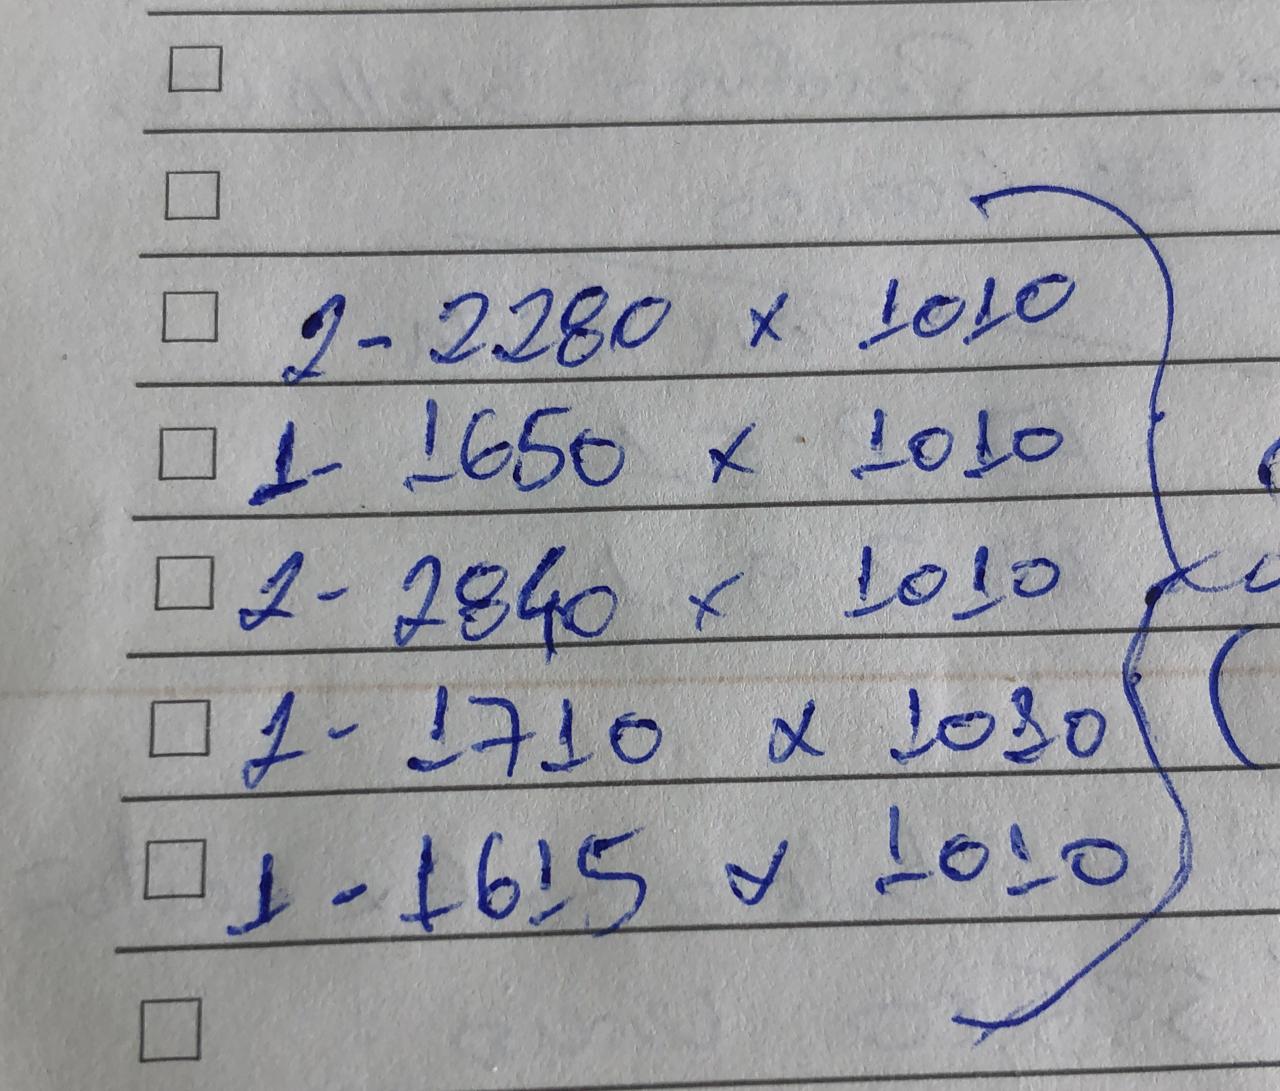 2 - 2280 x 1010
1 - 1650 x 1010
2 - 2840 x 1010
2 - 1710 x 1010
1 - 1615 x 1010